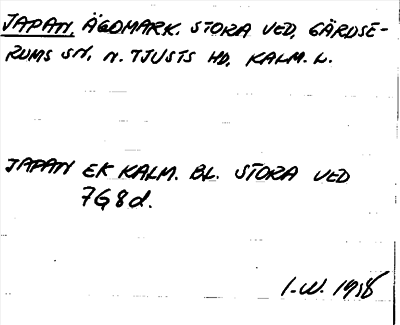 JAPAN, ÄGOMARK. STORA VED, GÄRDSE-
RUMS SN, N. TJUSTS HD, KALM. L.
JAPAN EK KALM. BL. STORA VED
7G8d.
I.W. 1958